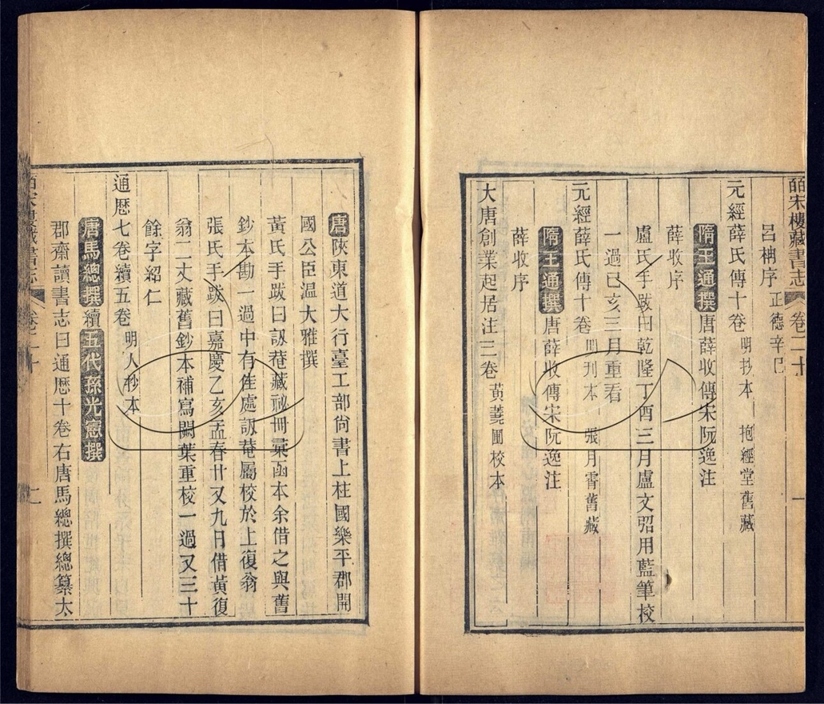 皕宋樓藏書志 卷二十
呂柟序 正德辛巳
元經薛氏傳十卷 明抄本 抱經堂舊藏
隋王通撰唐薛收傳宋阮逸注
薛收序
盧氏手跋曰乾隆丁酉三月盧文弨用藍筆校
一過己亥三月重看
元經薛氏傳十卷 明刊本 張月霄舊藏
隋王通撰唐薛收傳宋阮逸注
薛收序
大唐創業起居注三卷 黃蕘圃校本
唐陝東道大行臺工部尙書上柱國樂平郡開
國公臣溫大雅撰
黃氏手跋曰訒菴藏祕冊彙函本余借之與舊
鈔本勘一過中有佳處訒菴屬校於上復翁
張氏手跋曰嘉慶乙亥孟春廿又九日借黃復
翁二丈藏舊鈔本補寫闕葉重校一過又三十
餘字紹仁
通歷七卷續五卷 明人抄本
唐馬總撰續五代孫光憲撰
郡齋讀書志曰通歷十卷右唐馬總撰總纂太
皕宋樓藏書志 卷二十